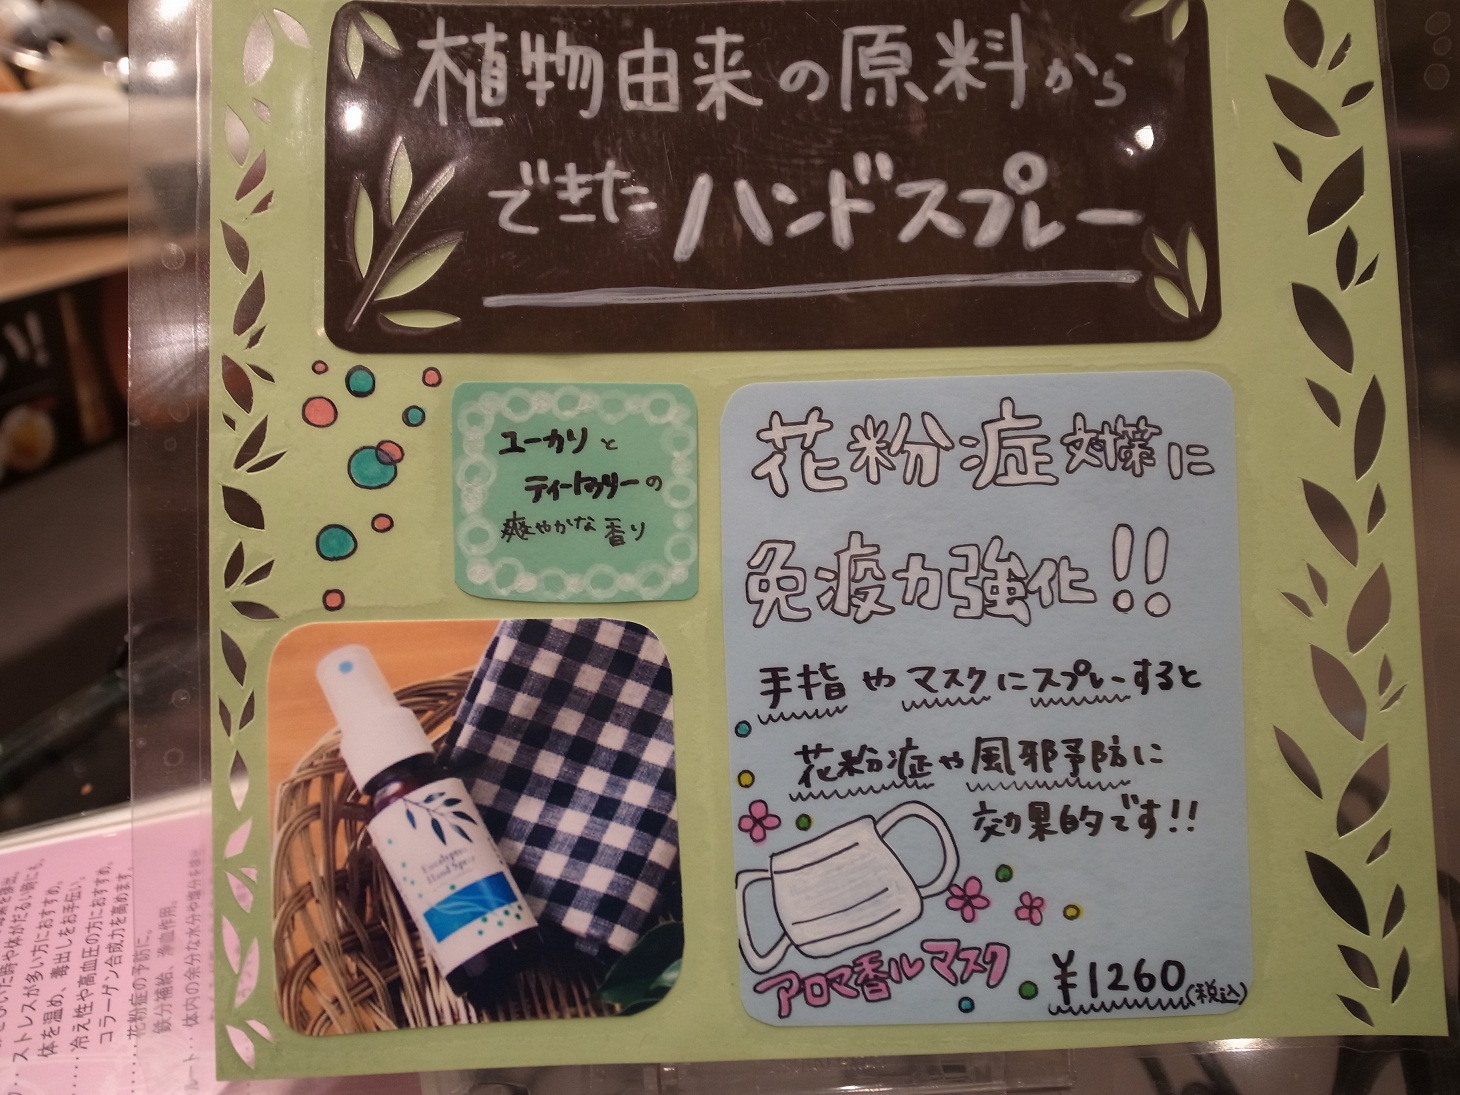 植物由来の原料から
できたハンドスプレー
ユーカリと
ティートゥリーの
爽やかな香り
花粉症対策に
免疫力強化!!
手指やマスクにスプレーすると
花粉症や風邪予防に
効果的です!!
アロマ香ルマスク
¥1260(税込)
Eucalyptus
Hand Spray
ストレスが多い方におすすめ。
体を温め、毒出しをお手伝い。
冷え性や高血圧の方におすすめ。
コラーゲン合成力を高めます。
花粉症の予防に。
鉄分補給、浄血作用。